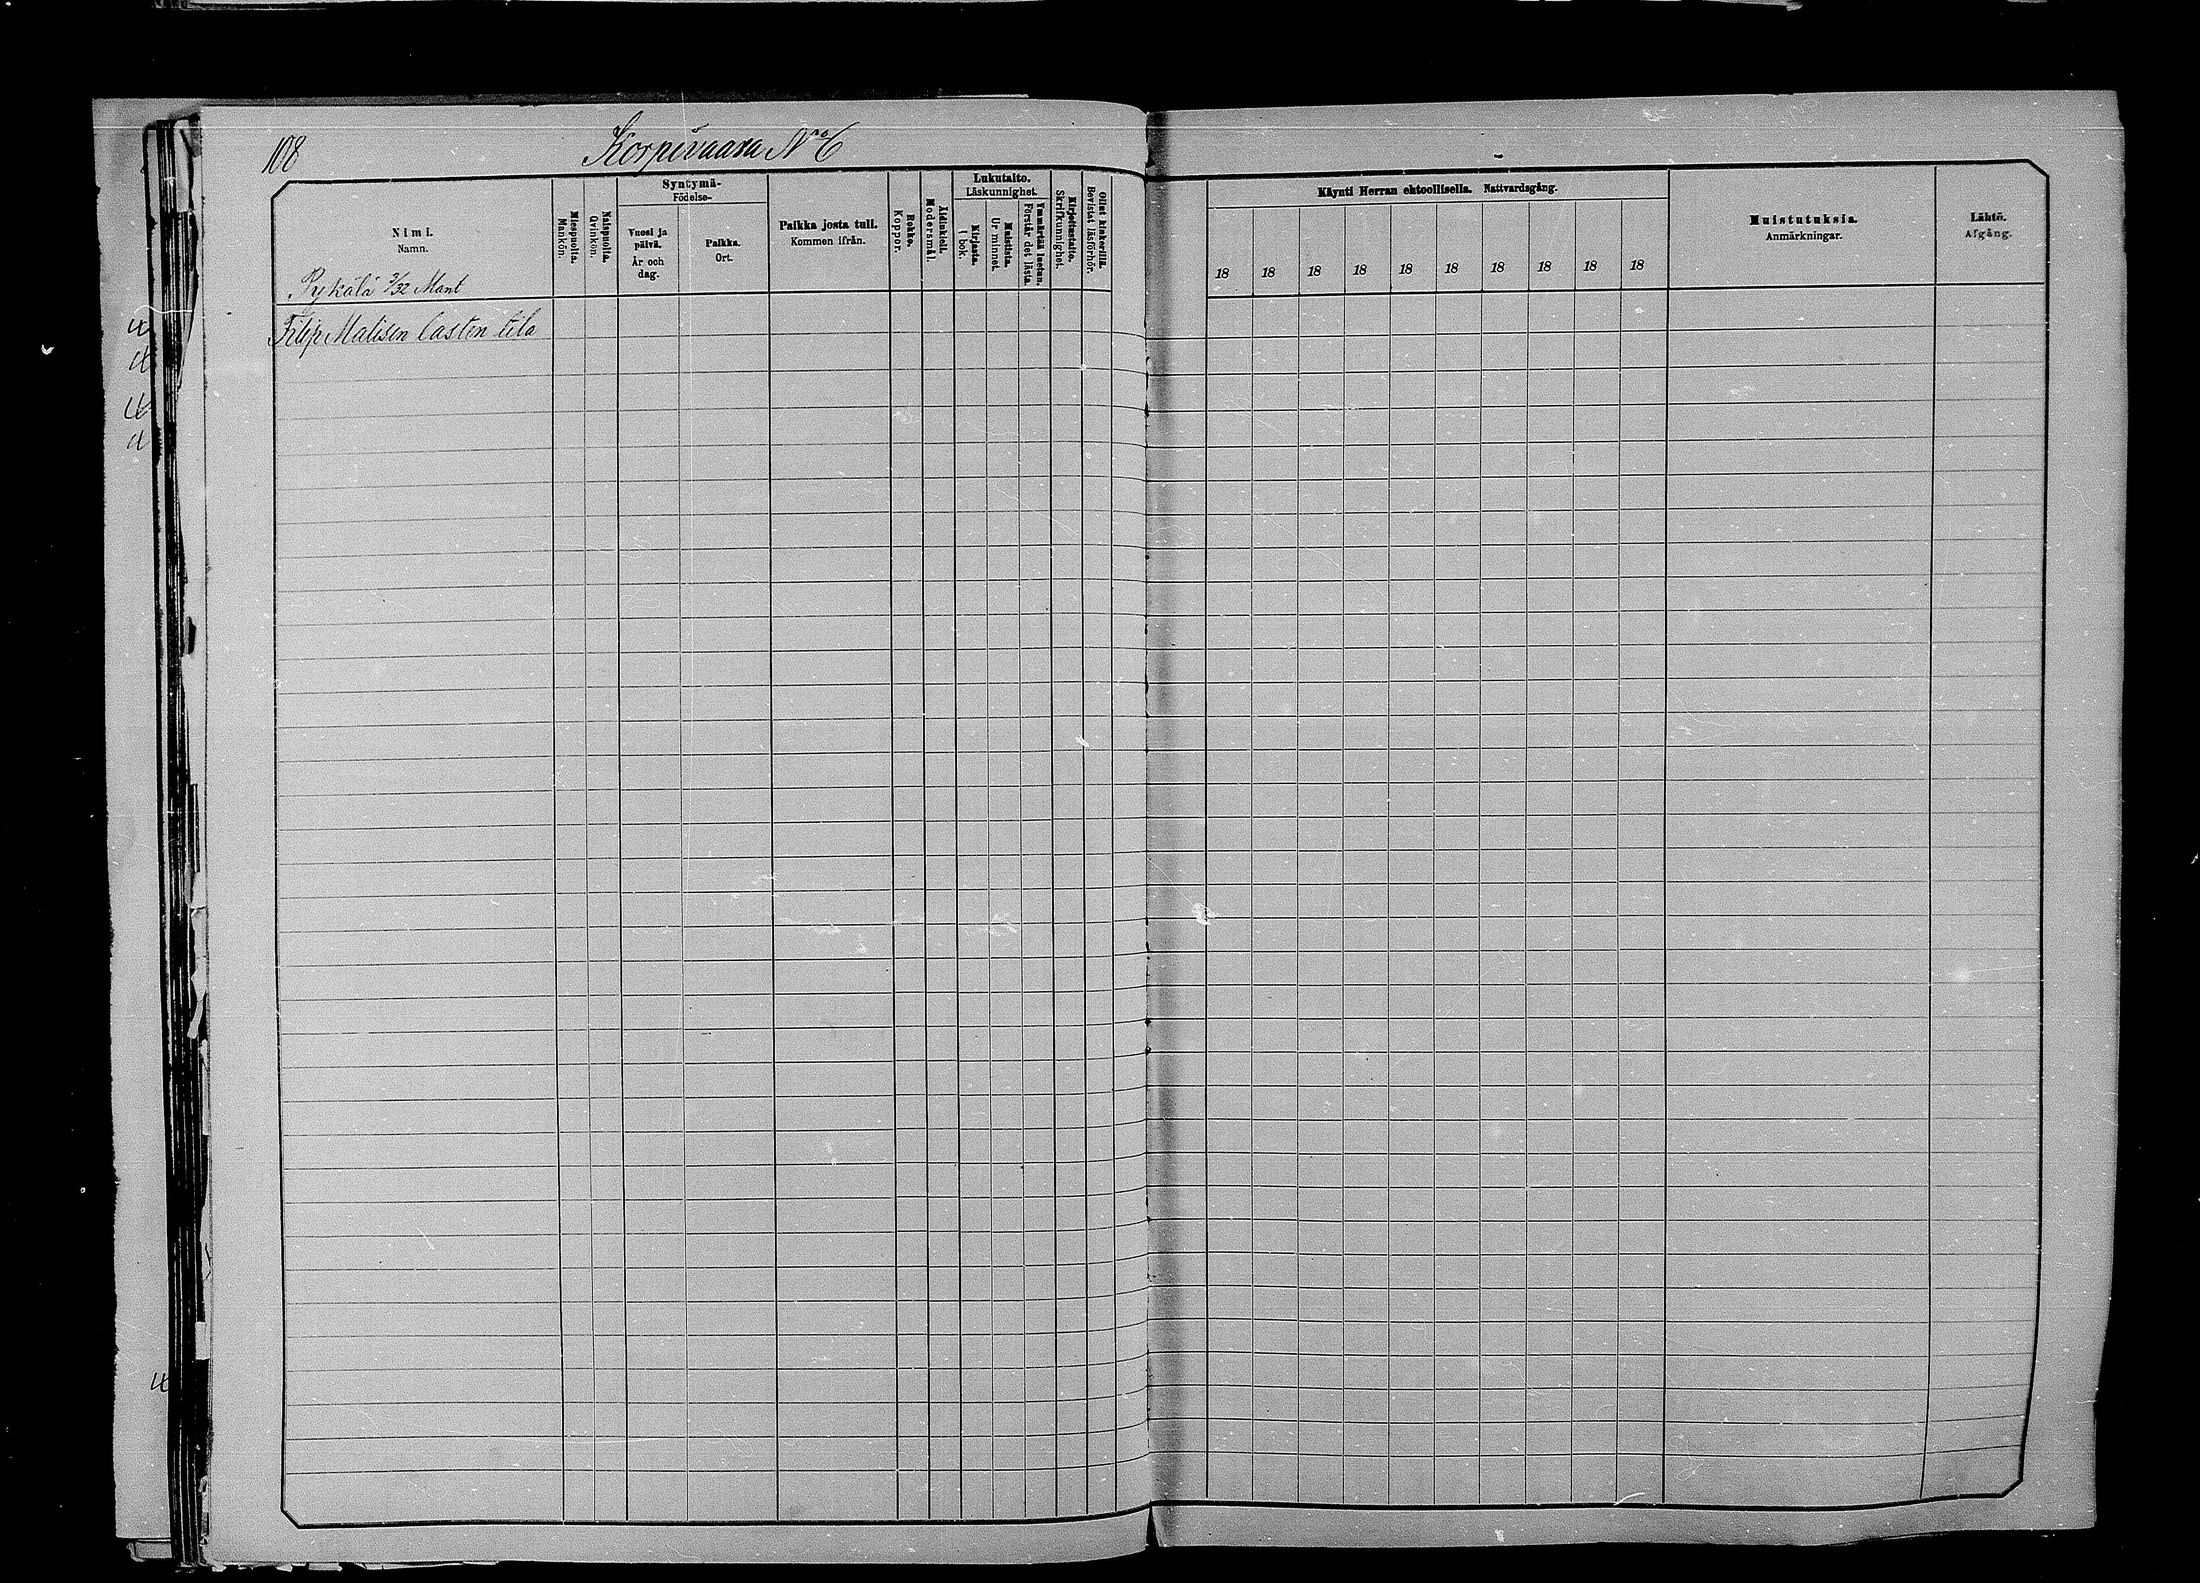 108
Korpivaara No 6
Nimi.
Namn.
Miespuolia.
Mankön.
Naispuolia.
Qvinkön.
Syntymä-
Födelse-
Vuosi ja
päivä.
År och
dag.
Paikka.
Ort.
Paikka josta tuli.
Kommen ifrån.
Rokko.
Koppor.
Äidinkieli.
Modersmål.
Lukutaito.
Läskunnighet.
Kirjasta.
I bok.
Muistista.
Ur minnet.
Ymmärtää luetun.
Förstår det lästa.
Kirjoitustaito.
Skrifkunnighet.
Ollut kinkerillä.
Bevistat läsförhör.
Käynti Herran ehtoollisella. Nattvardsgång.
18 18 18 18 18 18 18 18 18 18
Muistutuksia.
Anmärkningar.
Lähtö.
Afgång.
Pykälä 3/32 Mant
Filip Malisen lasten tila